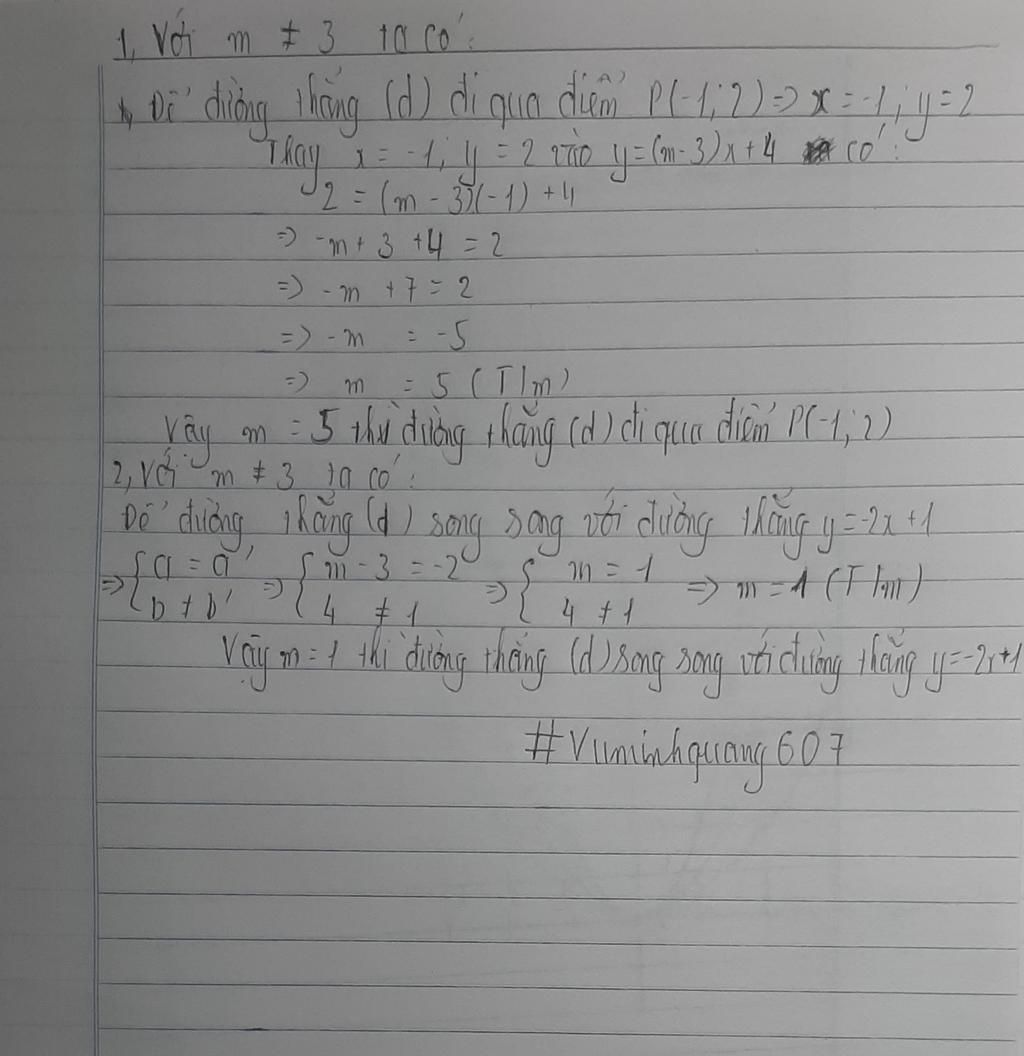 1, Với m ≠ 3 ta có:
Để đường thẳng (d) đi qua điểm P(-1; 2) => x = -1; y = 2
Thay x = -1; y = 2 vào y = (m-3)x + 4 có:
2 = (m - 3)(-1) + 4
=> -m + 3 + 4 = 2
=> -m + 7 = 2
=> -m = -5
=> m = 5 (T/m)
Vậy m = 5 thì đường thẳng (d) đi qua điểm P(-1; 2)
2, Với m ≠ 3 ta có:
Để đường thẳng (d) song song với đường thẳng y = -2x + 1
=> { a = a' => { m - 3 = -2 => { m = 1 => m = 1 (T/m)
b ≠ b' 4 ≠ 1 4 ≠ 1
Vậy m = 1 thì đường thẳng (d) song song với đường thẳng y = -2x + 1
#Vuminhquang607